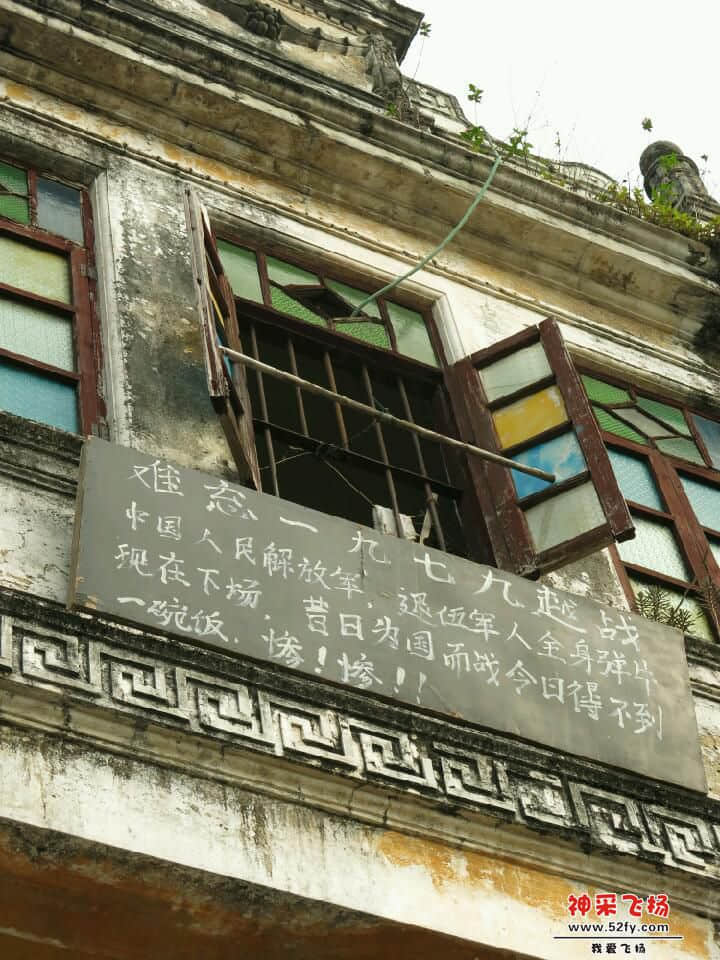 难忘一九七九越战
中国人民解放军，退伍军人全身弹片
现在下场，昔日为国而战今日得不到
一碗饭，惨！惨！！
神采飞扬
www.52fy.com
我爱飞扬